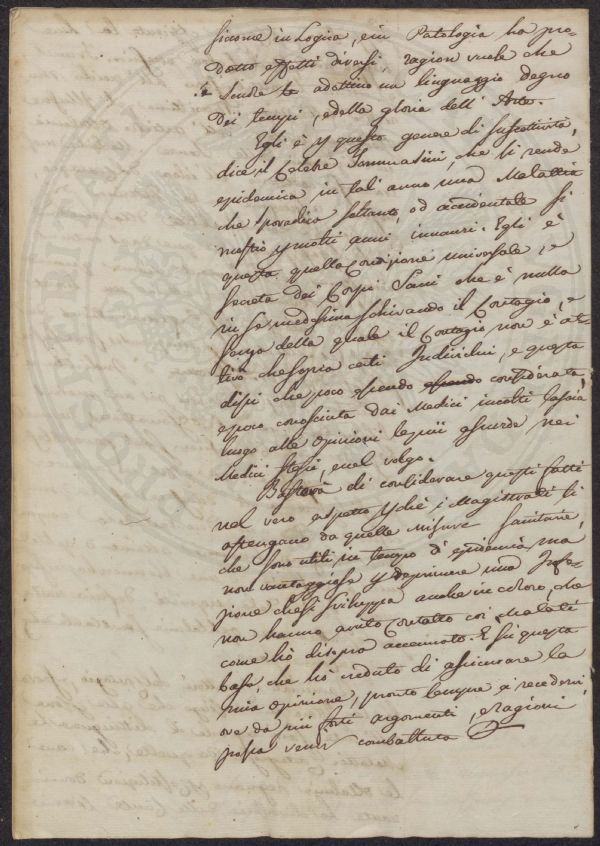 siccome in Logica, e in Patologia ha pro-
dotto effetti diversi, ragion vuole che
le Scuole adottino un linguaggio degno
dei tempi, e della gloria dell'Arte.
Egli è p questo genere di suscettività,
dice il Celebre Tommasini, che si rende
epidemica in tal anno una Malattia
che sporadica soltanto, od accidentale si
mostrò p molti anni innanzi. Egli è
questa quella Condizione universale, e
secreta dei Corpi Sani che è nulla
in se medesima schivando il Contagio, e
senza della quale il Contagio non è at-
tivo che sopra certi Individui, e questa
dissi che poco essendo considerata,
e poco conosciuta dai Medici incolti lascia
luogo alle opinioni le più assurde nei
Medici stessi, e nel volgo.
Basterà di considerare questi fatti
nel vero aspetto p chè i Magistrati si
astengano da quelle Misure Sanitarie,
che sono utili in tempo d'epidemia, ma
non vantaggiose p deprimere una Infe-
zione che si sviluppa anche in coloro, che
non hanno avuto Contatto coi Malati
come hò disopra accennato. E su questa
base, che hò creduto di assicurare la
mia opinione, pronto sempre a recedervi
ove da più forti argomenti, e ragioni
possa venir combattuta